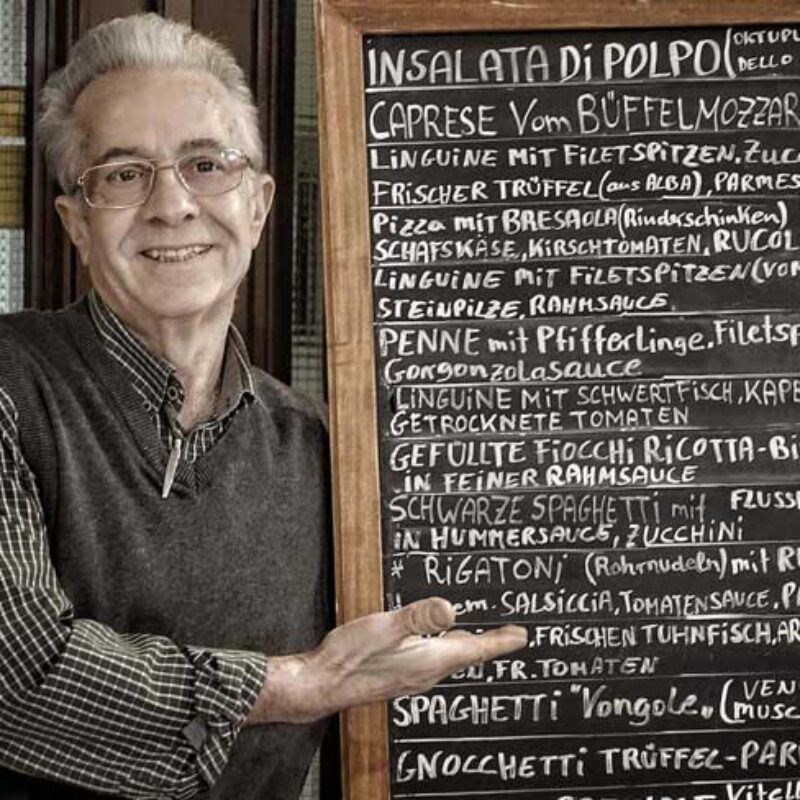 INSALATA Di POLPO (OKTUPU
DELLO
CAPRESE Vom BÜFFELMOZZAR
LINGUINE MIT FILETSPITZEN, ZUCC
FRISCHER TRÜFFEL (aus ALBA), PARMES
Pizza MIT BRESAOLA (Rinderschinken)
SCHAFSKÄSE, KIRSCHTOMATEN, RUCOL
LINGUINE MIT FILETSPITZEN (VON
STEINPILZE, RAHMSAUCE
PENNE mit Pfifferlinge, Filetsp
Gorgonzolasauce
LINGUINE MIT SCHWERTFISCH, KAPE
GETROCKNETE TOMATEN
GEFÜLLTE FIOCCHI RICOTTA-Bi
IN FEINER RAHMSAUCE
SCHWARZE SPAGHETTI mit FLUSS
iN HUMMERSAUCE, ZUCCHINI
* RIGATONI (Rohrnudeln) mit R
em. SALSICCIA, TOMATENSAUCE, P
, FRISCHEN TUHNFISCH, AR
EN, FR. TOMATEN
SPAGHETTI "Vongole" (VEN
MUSC
GNOCCHETTI TRÜFFEL-PAR
Vitell